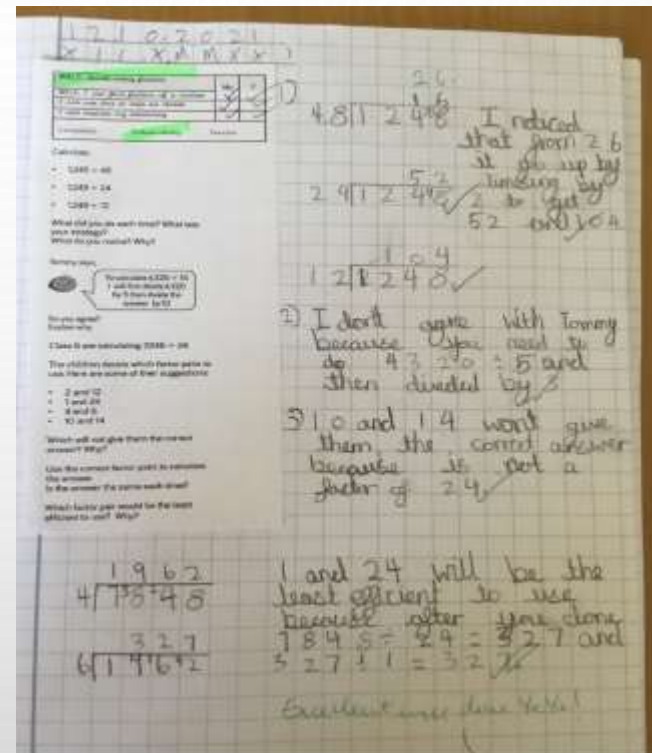 1 2 1 0 . 2 0 2 1
X I I . X . M M X X I
Calculate:
• 1,248 ÷ 48
• 1,248 ÷ 24
• 1,248 ÷ 12
What did you do each time? What was
your strategy?
What do you notice? Why?
Tommy says,
To calculate 4,320 ÷ 15
I will first divide 4,320
by 5 then divide the
answer by 10
Do you agree?
Explain why.
Class 6 are calculating 7,848 ÷ 24
The children decide which factor pairs to
use. Here are some of their suggestions:
• 2 and 12
• 1 and 24
• 4 and 6
• 10 and 14
Which will not give them the correct
answer? Why?
Use the correct factor pairs to calculate
the answer.
Is the answer the same each time?
Which factor pair would be the least
efficient to use? Why?
1)
2 6
4 8 1 2 4 8
I noticed
that from 2 6
it go up by
timesing by
2 to get
5 2 and 1 0 4
5 2
2 4 1 2 4 8
1 0 4
1 2 1 2 4 8
2) I don't agree with Tommy
because you need to
do 4 3 2 0 ÷ 5 and
then divided by 3
3) 1 0 and 1 4 wont give
them the correct answer
because is not a
factor of 2 4
1 9 6 2
4 7 8 4 8
3 2 7
6 1 9 6 2
1 and 24 will be the
least efficient to use
because after you done
7 8 4 8 ÷ 2 4 = 3 2 7 and
3 2 7 ÷ 1 = 3 2 7
Excellent